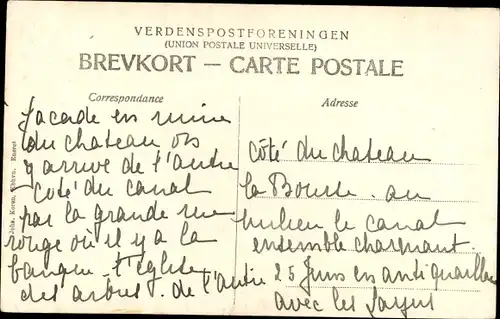 VERDENSPOSTFORENINGEN
(UNION POSTALE UNIVERSELLE)
BREVKORT — CARTE POSTALE
Correspondance
Adresse
facade en ruine
du chateau où
y arrive de l'autre
côté du canal
par la grande rue
rouge où il y a la
banque - l'Eglise
des arbres. de l'autre
côté du chateau
la Bourse. au
milieu le canal
ensemble charmant.
25 Juin en antiquaille
avec les